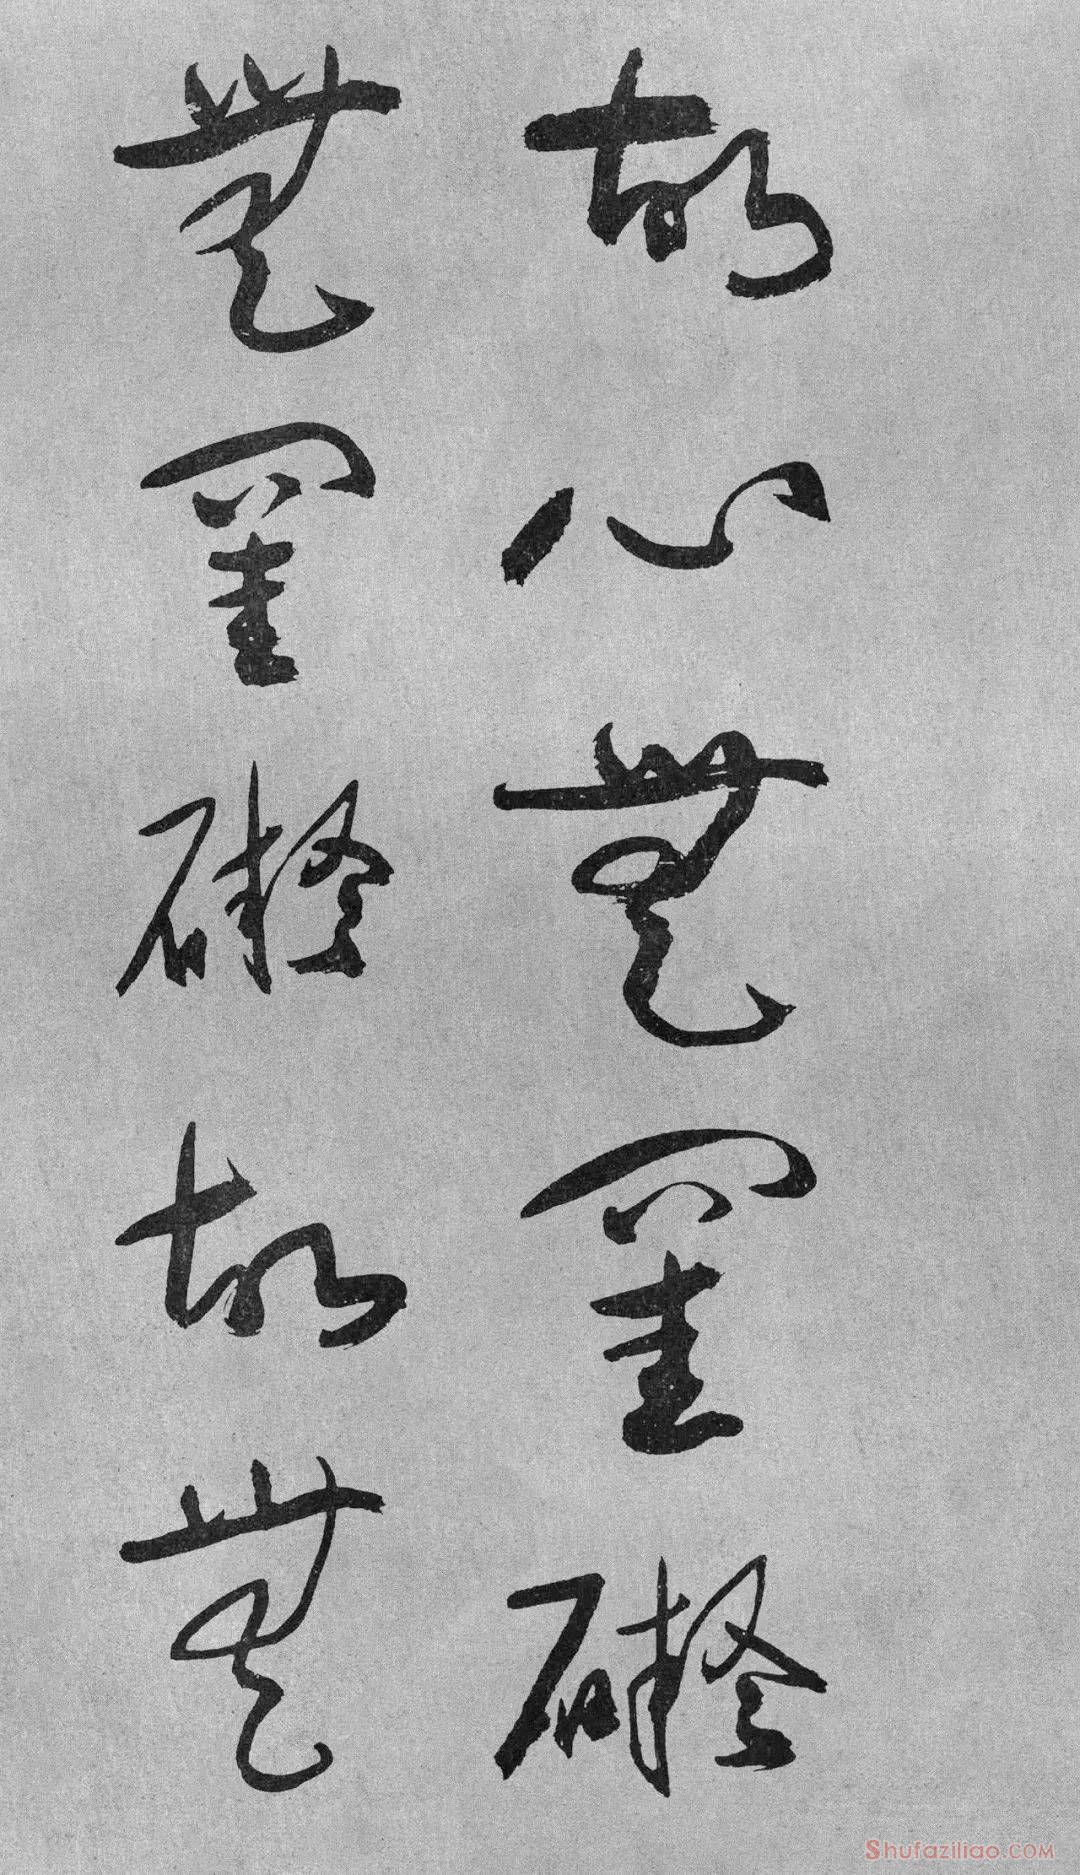 故心無罣礙
無罣礙故無
Shufaziliao.COM